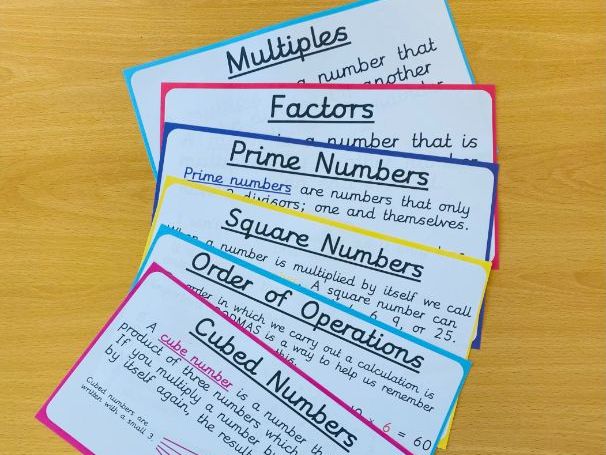 Multiples
a number that
another
Factors
a number that is
Prime Numbers
Prime numbers are numbers that only
2 divisors; one and themselves.
Square Numbers
When a number is multiplied by itself we call
A square number can
6, 9, or 25.
Order of Operations
order in which we carry out a calculation is
BODMAS is a way to help us remember
this.
× 6 = 60
Cubed Numbers
A cube number is a number th
product of three numbers which
If you multiply a number b
by itself again, the result
Cubed numbers are
written with a small 3.